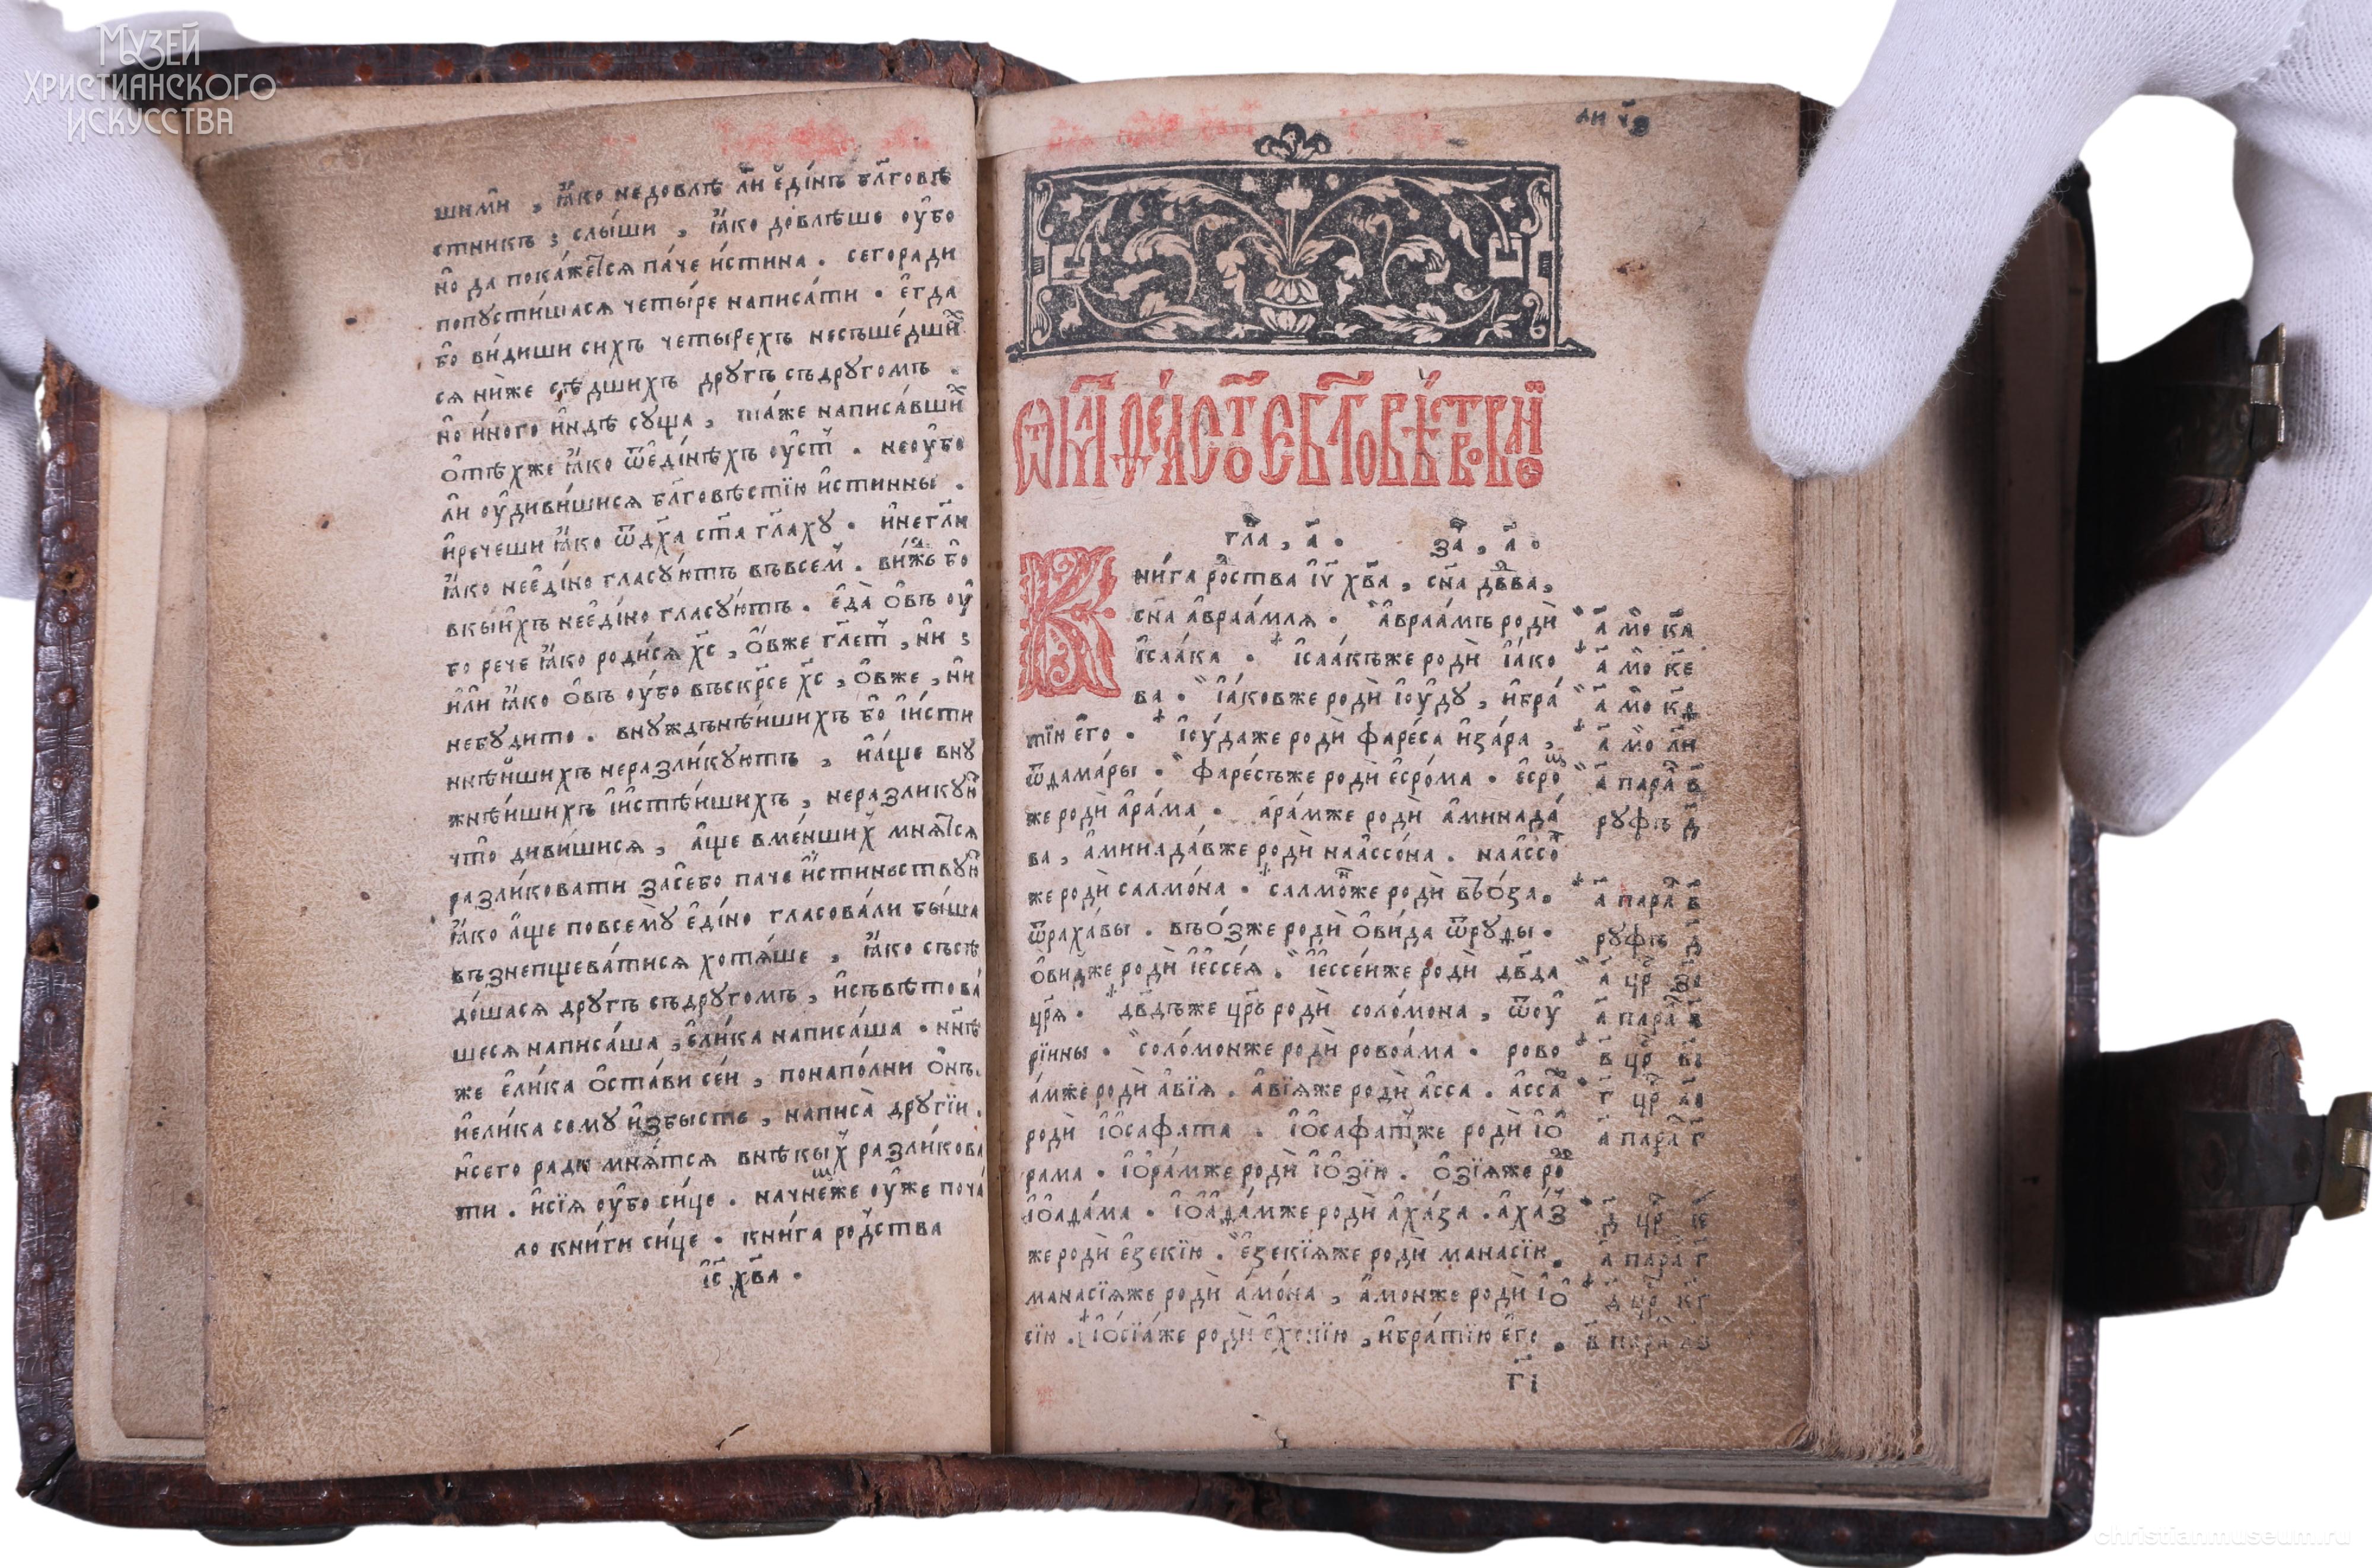 Музей
Христианского
искусства
шими̑ , ꙗ҆́ко недовлѣ́ л҃и є҆ди́нъ бл҃говѣ
стникъ ; слы́ши , ꙗ҆́ко довлѣ́ше оу҆́бо
но̑ да пока́жетсѧ па́че и҆́стина . сегора́ди
попꙋсти́шасѧ четы́ре написа́ти . є҆гда
бо̑ ви́диши сихъ четырехъ несъше́дши
сѧ ни́же сѣ́дшихъ дрꙋгъ съдрꙋгомъ .
но̑ и҆́ного и҆́ндѣ сꙋща , та́же написа́вши
ѻ҆тѣ́хже ꙗ҆́ко ѿє҆ди́нѣхъ оу҆́ст . неоу҆́бо
л҃и оу҆диви́шисѧ бл҃говѣстїю и҆́стинны .
и҆рече́ши ꙗ҆́ко ѿдх҃а ст҃а гл҃ахꙋ . и҆негл҃и
ꙗ҆́ко неє҆ди́но гласꙋ́ютъ въвсем . ви́жь бо̑
вкы́ихъ неє҆ди́но гласꙋ́ютъ . є҆да̀ ѻ҆́въ оу҆
бо рече ꙗ҆́ко роди́сѧ хс҃ , ѻ҆́вже гл҃ет , ни̑ ;
и҆лѝ ꙗ҆́ко ѻ҆́въ оу҆́бо въскр҃се хс҃ , ѻ҆́вже , ни̑
небꙋ́дито . внꙋждьнѣ́ишихъ бо̑ и҆и҆́сти
ннѣ́ишихъ неразли́кꙋютъ , и҆а҆́ще внꙋ
жнѣ́ишихъ и҆и҆стѣ́ишихъ , неразликꙋю
что̑ диви́шисѧ , а҆́ще вме́нших мнѧ́тсѧ
разли́ковати засе́бо паче и҆́стиньствꙋю
ꙗ҆́ко а҆́ще повсемꙋ̀ є҆ди́но гласова́ли бы́ша
възнепщева́тисѧ хотѧ́ше , ꙗ҆́ко съсѣ
до́шасѧ дрꙋгъ съдрꙋгомъ , и҆съвѣтова́
шесѧ написа́ша , є҆ли́ка написа́ша . нн҃ѣ
же є҆ли́ка ѻ҆ста́ви се́и , понапо́лни ѻ҆́нъ .
и҆ели́ка семꙋ и҆збысть , написа̀ дрꙋгїи .
и҆сего ради мнѧ́тсѧ внѣ́кых разли́кова
ти . и҆сїѧ оу҆́бо си́це . начнемже оу҆́же поча́
ло кни́ги си́це . кни́га родства
і҆с҃ хв҃а .
ли
Ѿ МАТѲЕѦ СТО ЕѴГЛОВѢСТВОВАНІЕ
гл҃а , а҃ . за҃ , а҃ .
Кни́га ро́ства і҆у҃ хв҃а , сн҃а дв҃ва ,
сн҃а а҆враа́млѧ . а҆враа́мъ роди̑
і҆саа́ка . і҆саа́къже роди̑ і҆а́ко
ва . і҆а́ковже роди̑ і҆оу҆дꙋ , и҆бра́
тїю є҆го̀ . і҆оу́даже роди̑ фаре́са и҆за́ра ,
ѿѳама́ры . фаре́съже роди̑ є҆сро́ма . є҆сро́
же роди̑ а҆ра́ма . а҆ра́мже роди̑ а҆минада́
ва , а҆минада́вже роди̑ наа҆ссо́на . наа҆ссо́
же роди̑ салмо́на . салмо́нже роди̑ въо́ѕа .
ѿраха́вы . въо́зже роди̑ ѻ҆ви́да ѿрꙋ́ѳы .
ѻ҆видже роди̑ і҆ессе́ѧ . і҆ессе́иже роди̑ дв҃да
цр҃ѧ . дв҃дъже цр҃ь роди̑ соло́мона , ѿоу҆
рїины . соло́монже роди̑ ровоа́ма . рово
а́мже роди̑ а҆вїѧ . а҆вїѧже роди̑ а҆́сса . а҆́сса
роди̑ і҆ѻсафата . і҆ѻсафатже роди̑ і҆ѻ
рама . і҆ѻра́мже роди̑ і҆ѻзїю . ѻ҆зїѧже ро
і҆ѻаѳа́ма . і҆ѻаѳа́мже роди̑ а҆ха́ѕа . а҆ха́з
же роди̑ є҆зекїю . є҆зекїѧже роди̑ манасїю .
манасїѧже роди̑ а҆мо́на , а҆монже роди̑ і҆ѻ
сїю . і҆ѻсїа́же роди̑ є҆хонїю , и҆бра́тїю є҆го .
а҃ мо ка҃
а҃ мо ке҃
а҃ мо
а҃ мо ли҃
а҃ пара в҃
рꙋѳь д҃
а҃ пара в҃
рꙋѳь д҃
а҃ цр
а҃ пара
в҃ цр в҃і
г҃ цр
а҃ пара г҃
д҃ цр
а҃ пара г҃
д҃ цр кг҃
в҃ пара
г҃і
christianmuseum.ru